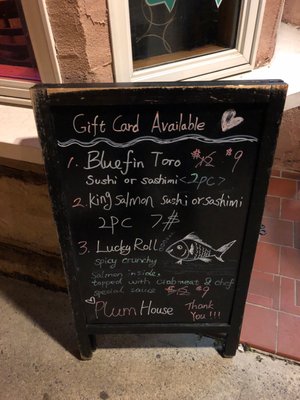 Gift Card Available
1. Bluefin Toro $12 $9
Sushi or sashimi <2PC>
2. King Salmon Sushi or Sashimi
2PC 7#
3. Lucky Roll
spicy crunchy
salmon inside,
topped with crabmeat & chef
special sauce $15 $9
Plum House Thank
You!!!